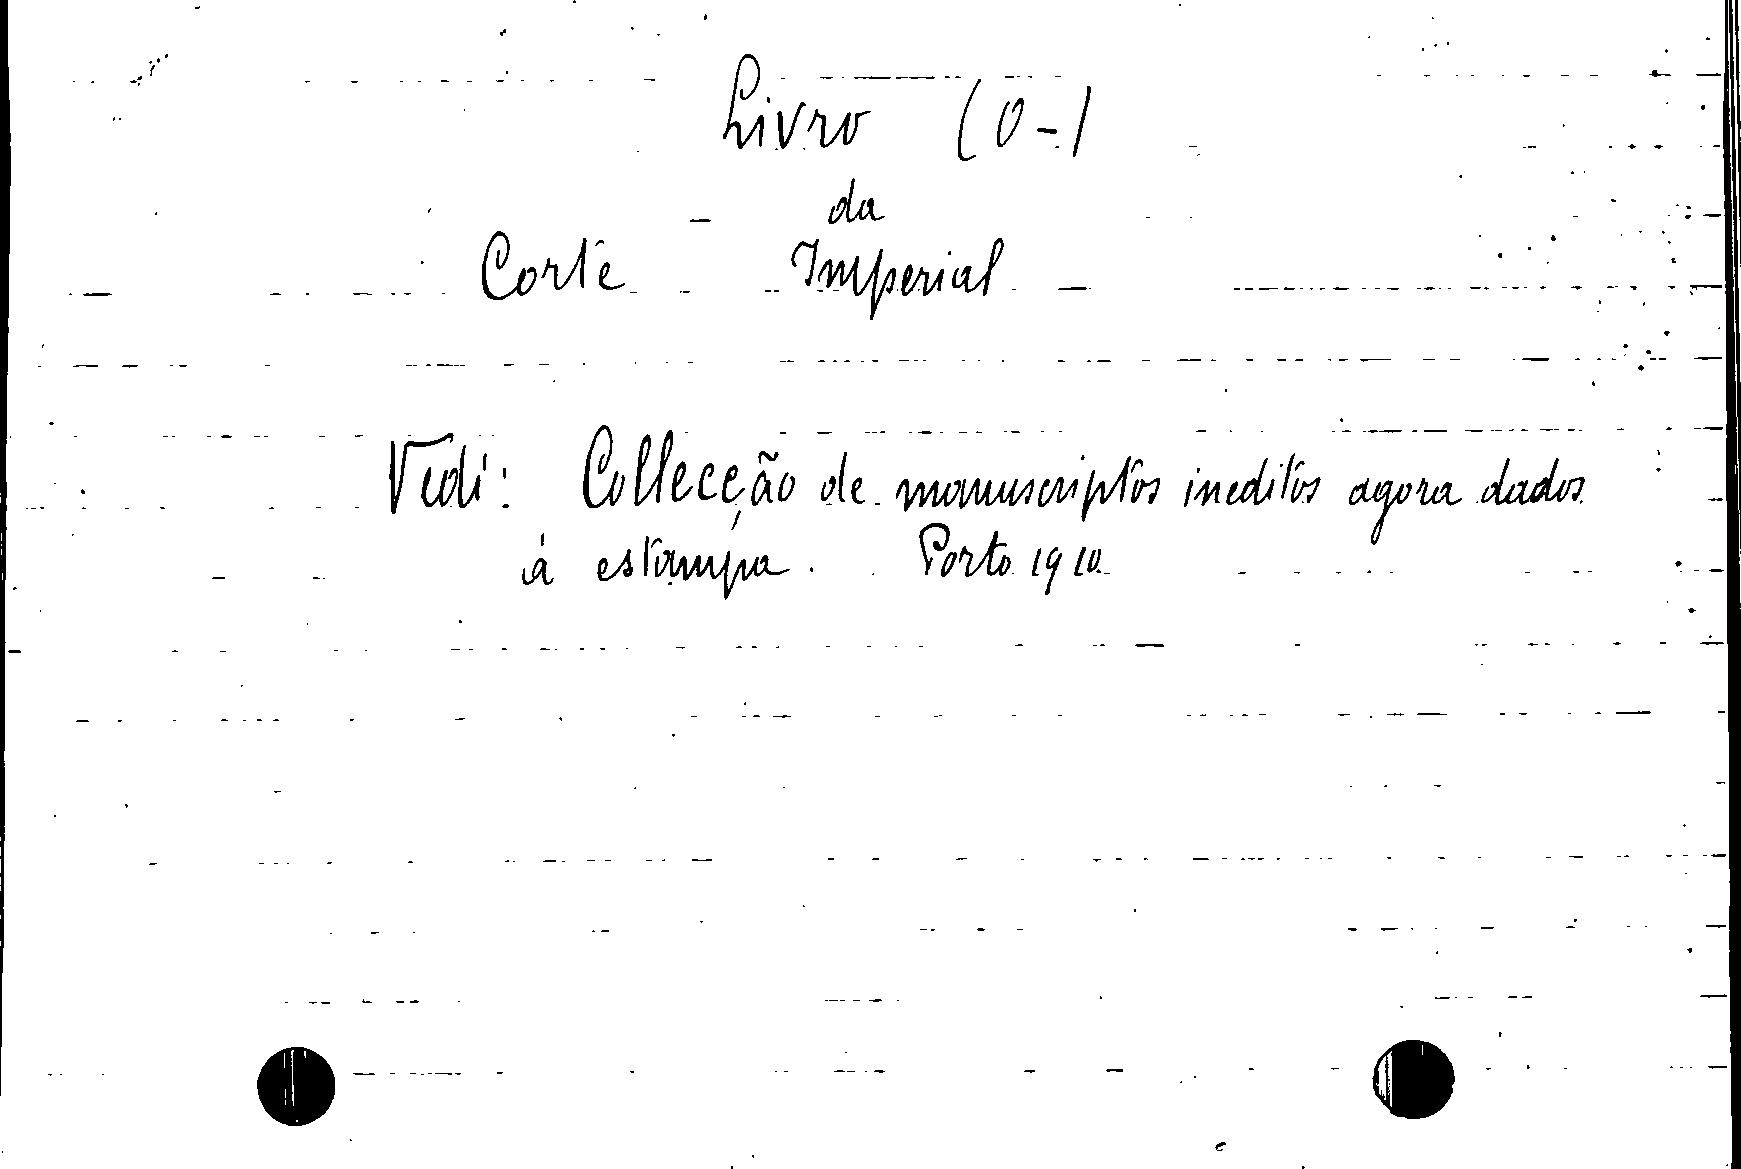 Livro (O-)
da
Corte Imperial
Vedi: Collecção de manuscriptos ineditos agora dados
á estampa. Porto 1910